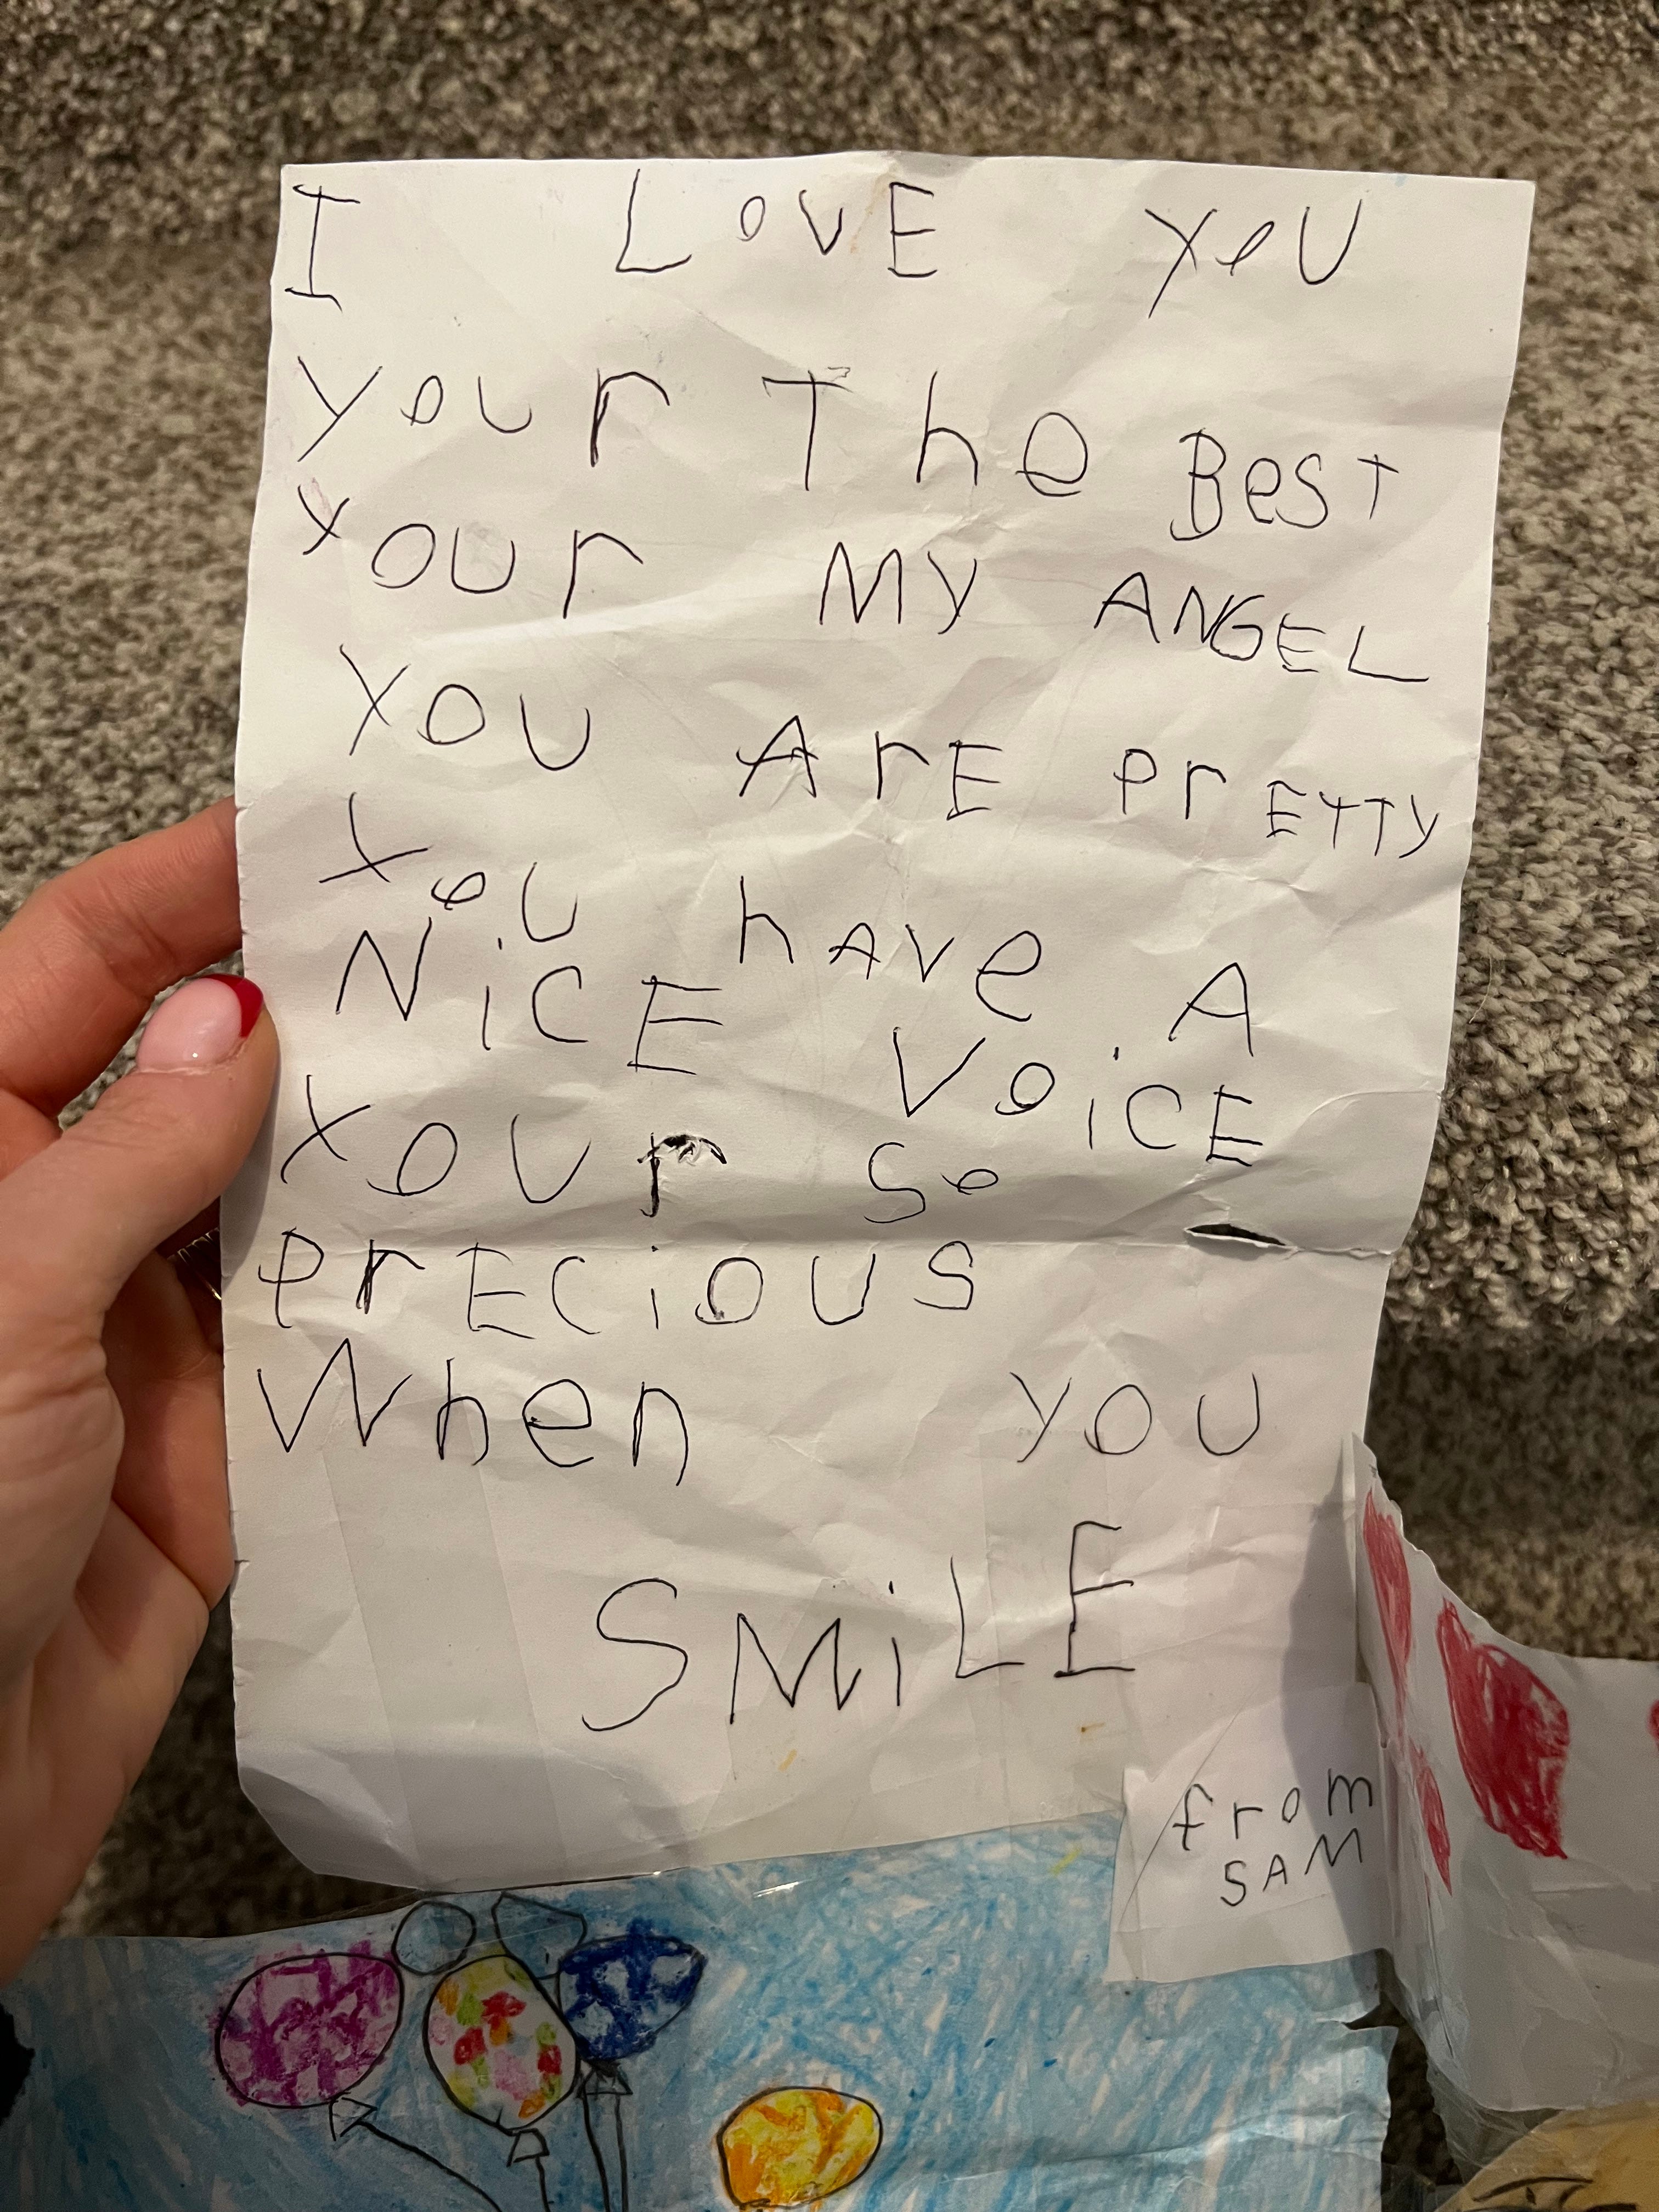 I LOVE YOU
YOUr The BesT
YOUr MY ANGEL
YOU ArE PrETTY
YOU hAve A
NiCE VOiCE
YOUr So
PrECiOUS
When YOU
SMiLE
from
SAM